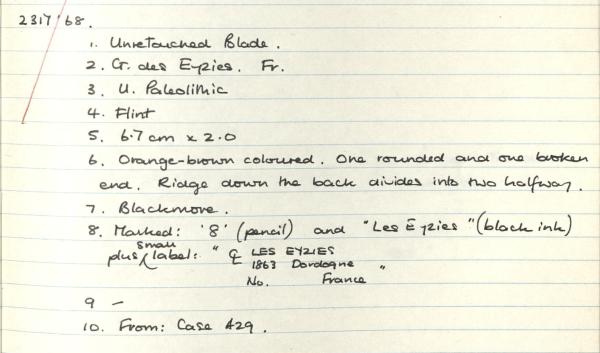 2317'68.
1. Unretouched Blade.
2. Gr. des Eyzies. Fr.
3. U. Paleolithic
4. Flint
5. 6.7 cm x 2.0
6. Orange-brown coloured. One rounded and one broken
end. Ridge down the back divides into two halfway.
7. Blackmore.
8. Marked: '8' (pencil) and "Les Eyzies" (black ink)
plus small label: " LES EYZIES
1863 Dordogne "
No. France
9 –
10. From: Case A29.